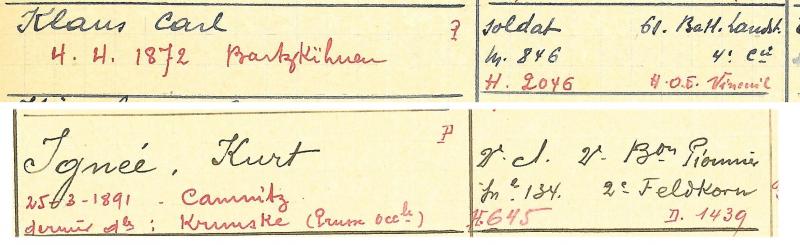 Klaus Carl
4. 4. 1872 Bartzkühnen
P
Soldat 61. Batt. Landst.
M. 846 4e Cie
H. 2046 H.O.E.
Ignée, Kurt
P
25-3-1891 - Camnitz
dernier dle : Krumske (Prusse Occle)
2e Bon Pionnier
134. 2e Feldkorn
H. 645 D. 1439